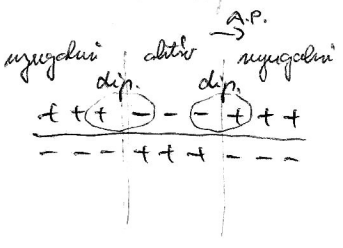 A.P.
→
nyugalmi aktív nyugalmi
dip. dip.
+ + + - - - + + +
- - - + + + - - -